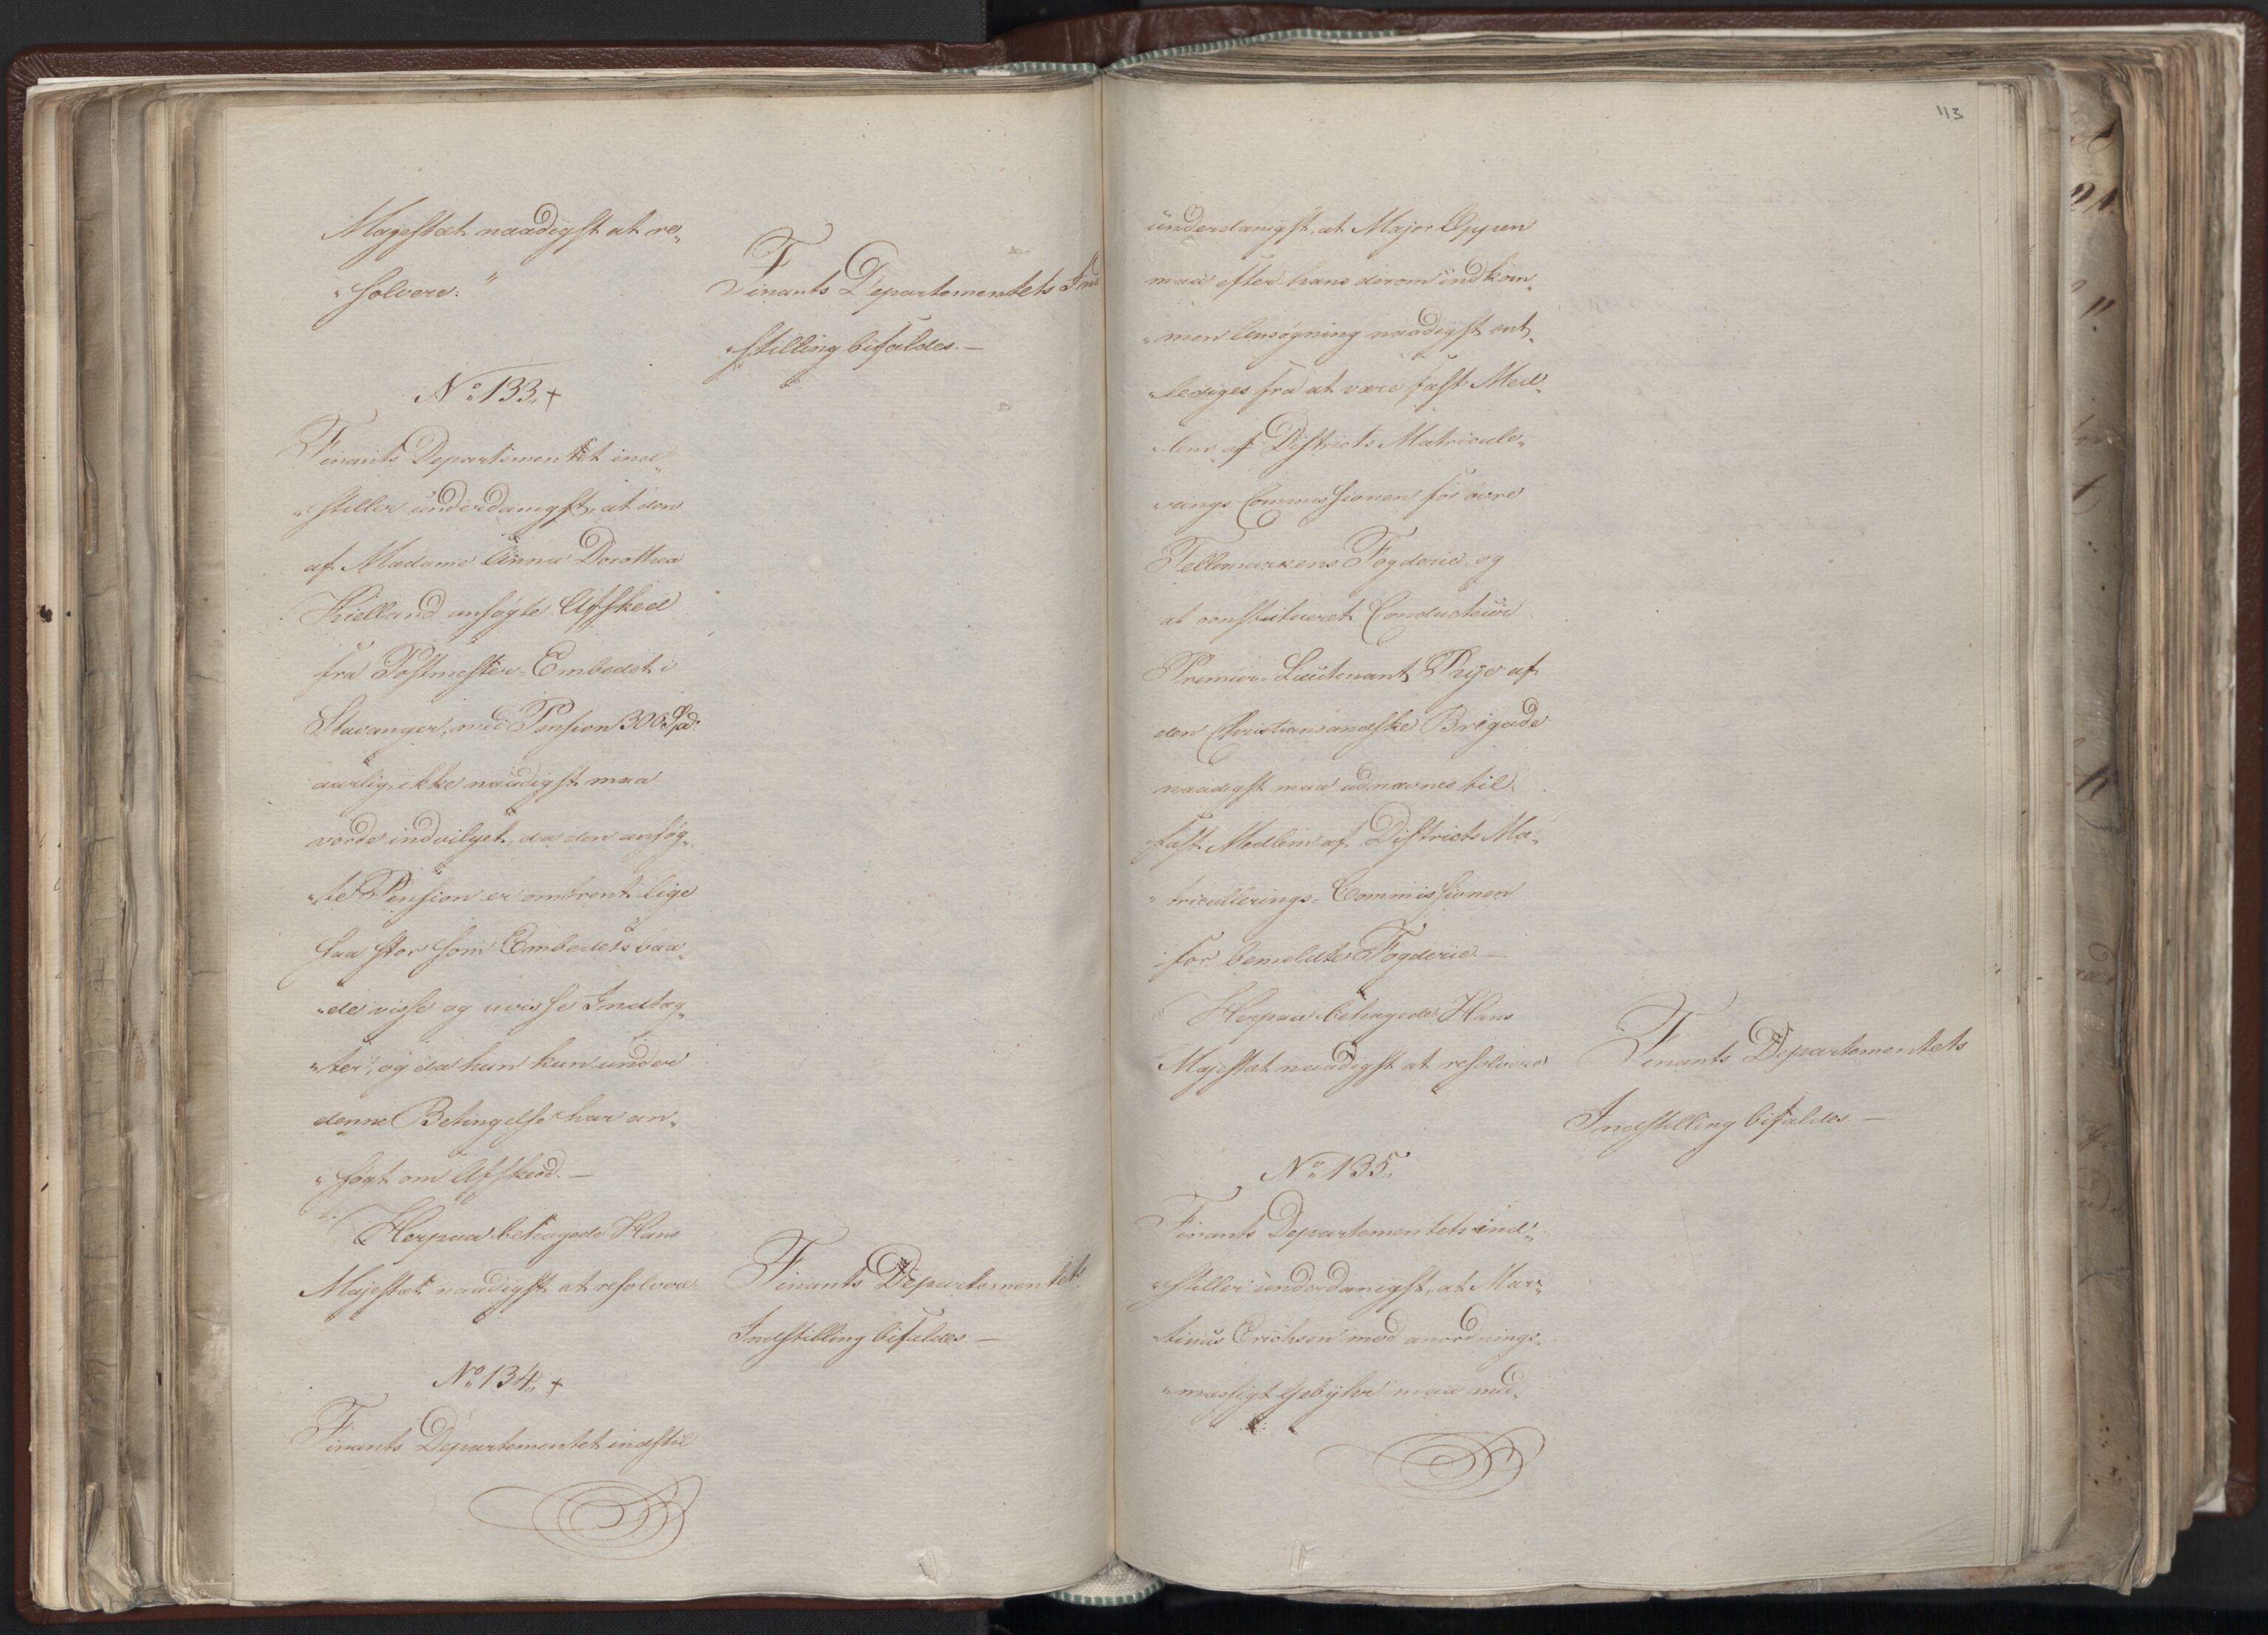 Majestæt naadigst at re„
„solvere:"
Finants Departementets Ind
„stilling bifaldes.—
No 133. +
Finants Departementet ind„
„stiller underdanigst, at den
af Madame Anna Dorothea
Kielland ansøgte Afsked
fra Postmester-Embedet i
Stavanger, med Pension 300 Spd:
aarlig, ikke naadigst maa
vorde indvilget, da den ansøg„
„te Pension er omtrent lige
saa stor som Embedets baa„
„de visse og uvisse Indtæg„
„ter, og da hun kun under
denne Betingelse har an„
„søgt om Afsked.—
Herpaa behagede Hans
Majestæt naadigst at resolvere
Finants Departementets
Indstilling bifaldes—
No 134. +
Finants Departementet indstil
113
underdanigst, at Major Oppen
maa efter hans derom indkom„
„men Ansøgning naadigst ent„
„lediges fra at være fast Med„
„lem af Districts Matricule„
„rings Commissionen for øvre
Tellemarkens Fogderie, og
at constitueret Conducteur
Premier-Lieutenant Rye af
den Christiansandske Brigade
naadigst maa udnævnes til
fast Medlem af Districts Ma„
„triculerings-Commissionen
for bemeldte Fogderie—
Herpaa behagede Hans
Majestæt naadigst at resolvere
Finants Departementets
Indstilling bifaldes—
No 135.
Finants Departementet ind„
„stiller underdanigst, at Mar„
„tinus Erichsen mod anordnings„
„mæssigt Gebyhr maa med„